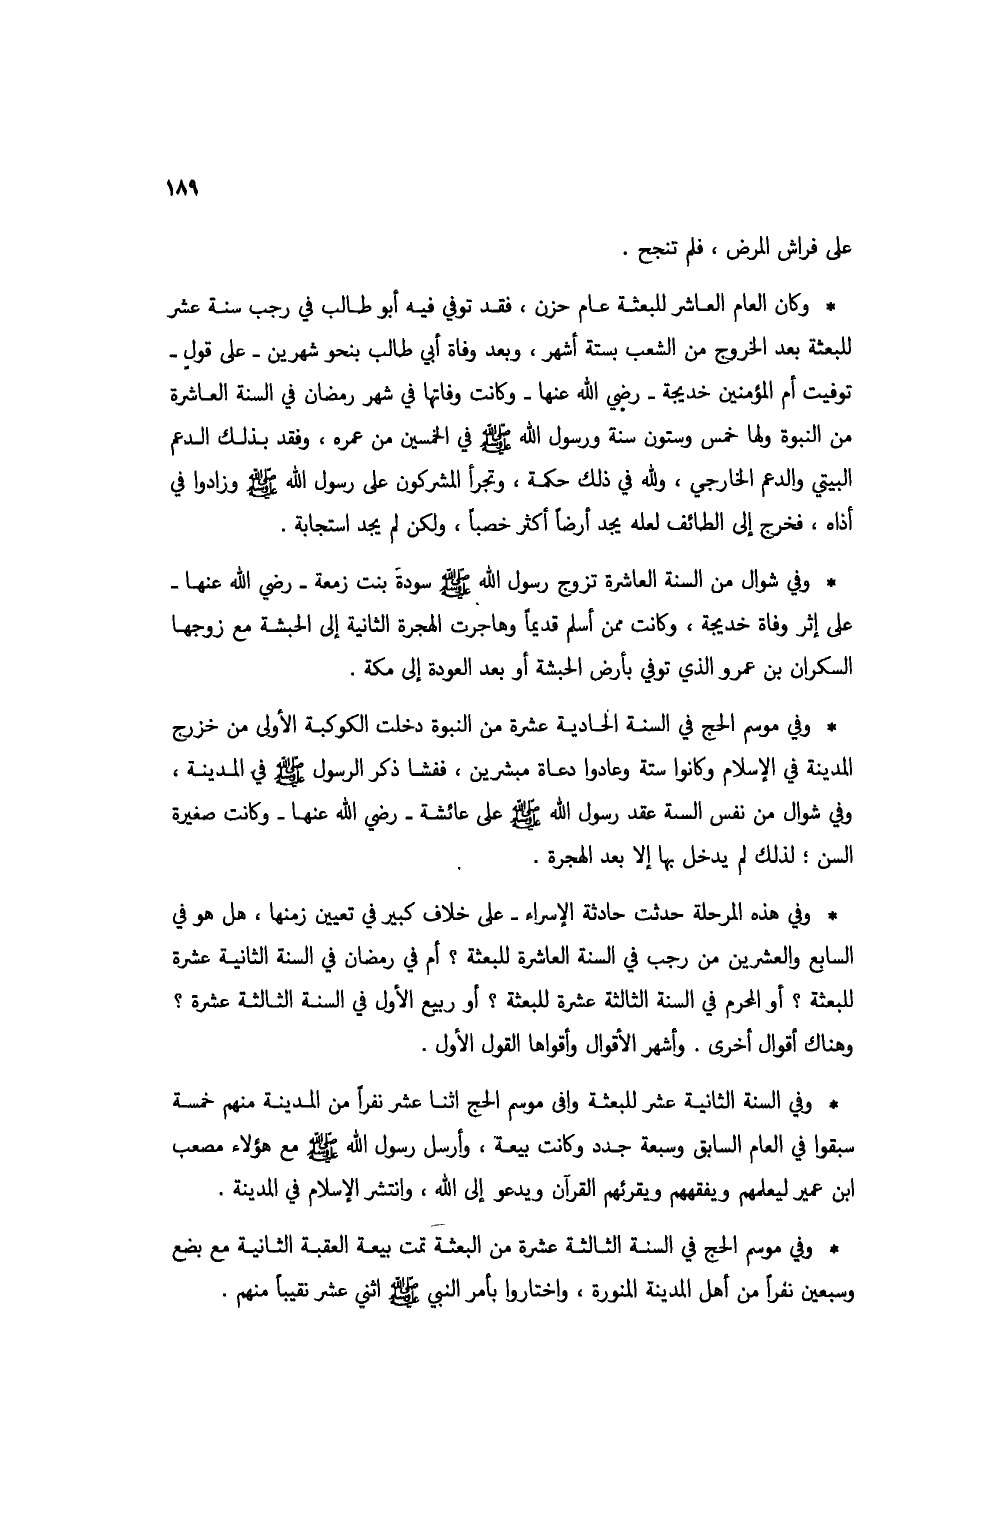 ١٨٩
على فراش المرض ، فلم تنجح .
* وكان العام العـاشر للبعثـة عـام حزن ، فقـد توفي فيـه أبو طـالب في رجب سنـة عشر
للبعثة بعد الخروج من الشعب بستة أشهر ، وبعد وفاة أبي طالب بنحو شهرين ـ على قولٍ ـ
توفيت أم المؤمنين خديجة ـ رضي الله عنها ـ وكانت وفاتها في شهر رمضان في السنة العـاشرة
من النبوة ولها خمس وستون سنة ورسول الله ﷺ في الخمسين من عمره ، وفقد بـذلـك الـدعم
البيتي والدعم الخارجي ، ولله في ذلك حكمـة ، وتجرأ المشركون على رسول الله ﷺ وزادوا في
أذاه ، فخرج إلى الطائف لعله يجد أرضاً أكثر خصباً ، ولكن لم يجد استجابة .
* وفي شوال من السنة العاشرة تزوج رسول الله ﷺ سودةَ بنت زمعة ـ رضي الله عنهـا ـ
على إثر وفاة خديجة ، وكانت ممن أسلم قديماً وهاجرت الهجرة الثانية إلى الحبشـة مع زوجهـا
السكران بن عمرو الذي توفي بأرض الحبشة أو بعد العودة إلى مكة .
* وفي موسم الحج في السنـة الحاديـة عشرة من النبوة دخلت الكوكبـة الأولى من خزرج
المدينة في الإسلام وكانوا ستة وعادوا دعـاة مبشرين ، ففشـا ذكر الرسول ﷺ في المـدينـة ،
وفي شوال من نفس السنة عقد رسول الله ﷺ على عائشـة ـ رضي الله عنهـا ـ وكانت صغيرة
السن ؛ لذلك لم يدخل بها إلا بعد الهجرة .
* وفي هذه المرحلة حدثت حادثة الإسراء ـ على خلاف كبير في تعيين زمنها ، هل هو في
السابع والعشرين من رجب في السنة العاشرة للبعثة ؟ أم في رمضان في السنة الثانيـة عشرة
للبعثة ؟ أو المحرم في السنة الثالثة عشرة للبعثة ؟ أو ربيع الأول في السنـة الثـالثـة عشرة ؟
وهناك أقوال أخرى . وأشهر الأقوال وأقواها القول الأول .
* وفي السنة الثانيـة عشر للبعثـة وافى موسم الحج اثنـا عشر نفراً من المـدينـة منهم خمسـة
سبقوا في العام السابق وسبعة جـدد وكانت بيعـة ، وأرسل رسول الله ﷺ مع هؤلاء مصعب
ابن عمير ليعلمهم ويفقههم ويقرئهم القرآن ويدعو إلى الله ، وانتشر الإسلام في المدينة .
* وفي موسم الحج في السنـة الثـالثـة عشرة من البعثـة تمت بيعـة العقبـة الثـانيـة مع بضع
وسبعين نفراً من أهل المدينة المنورة ، واختاروا بأمر النبي ﷺ اثني عشر نقيباً منهم .